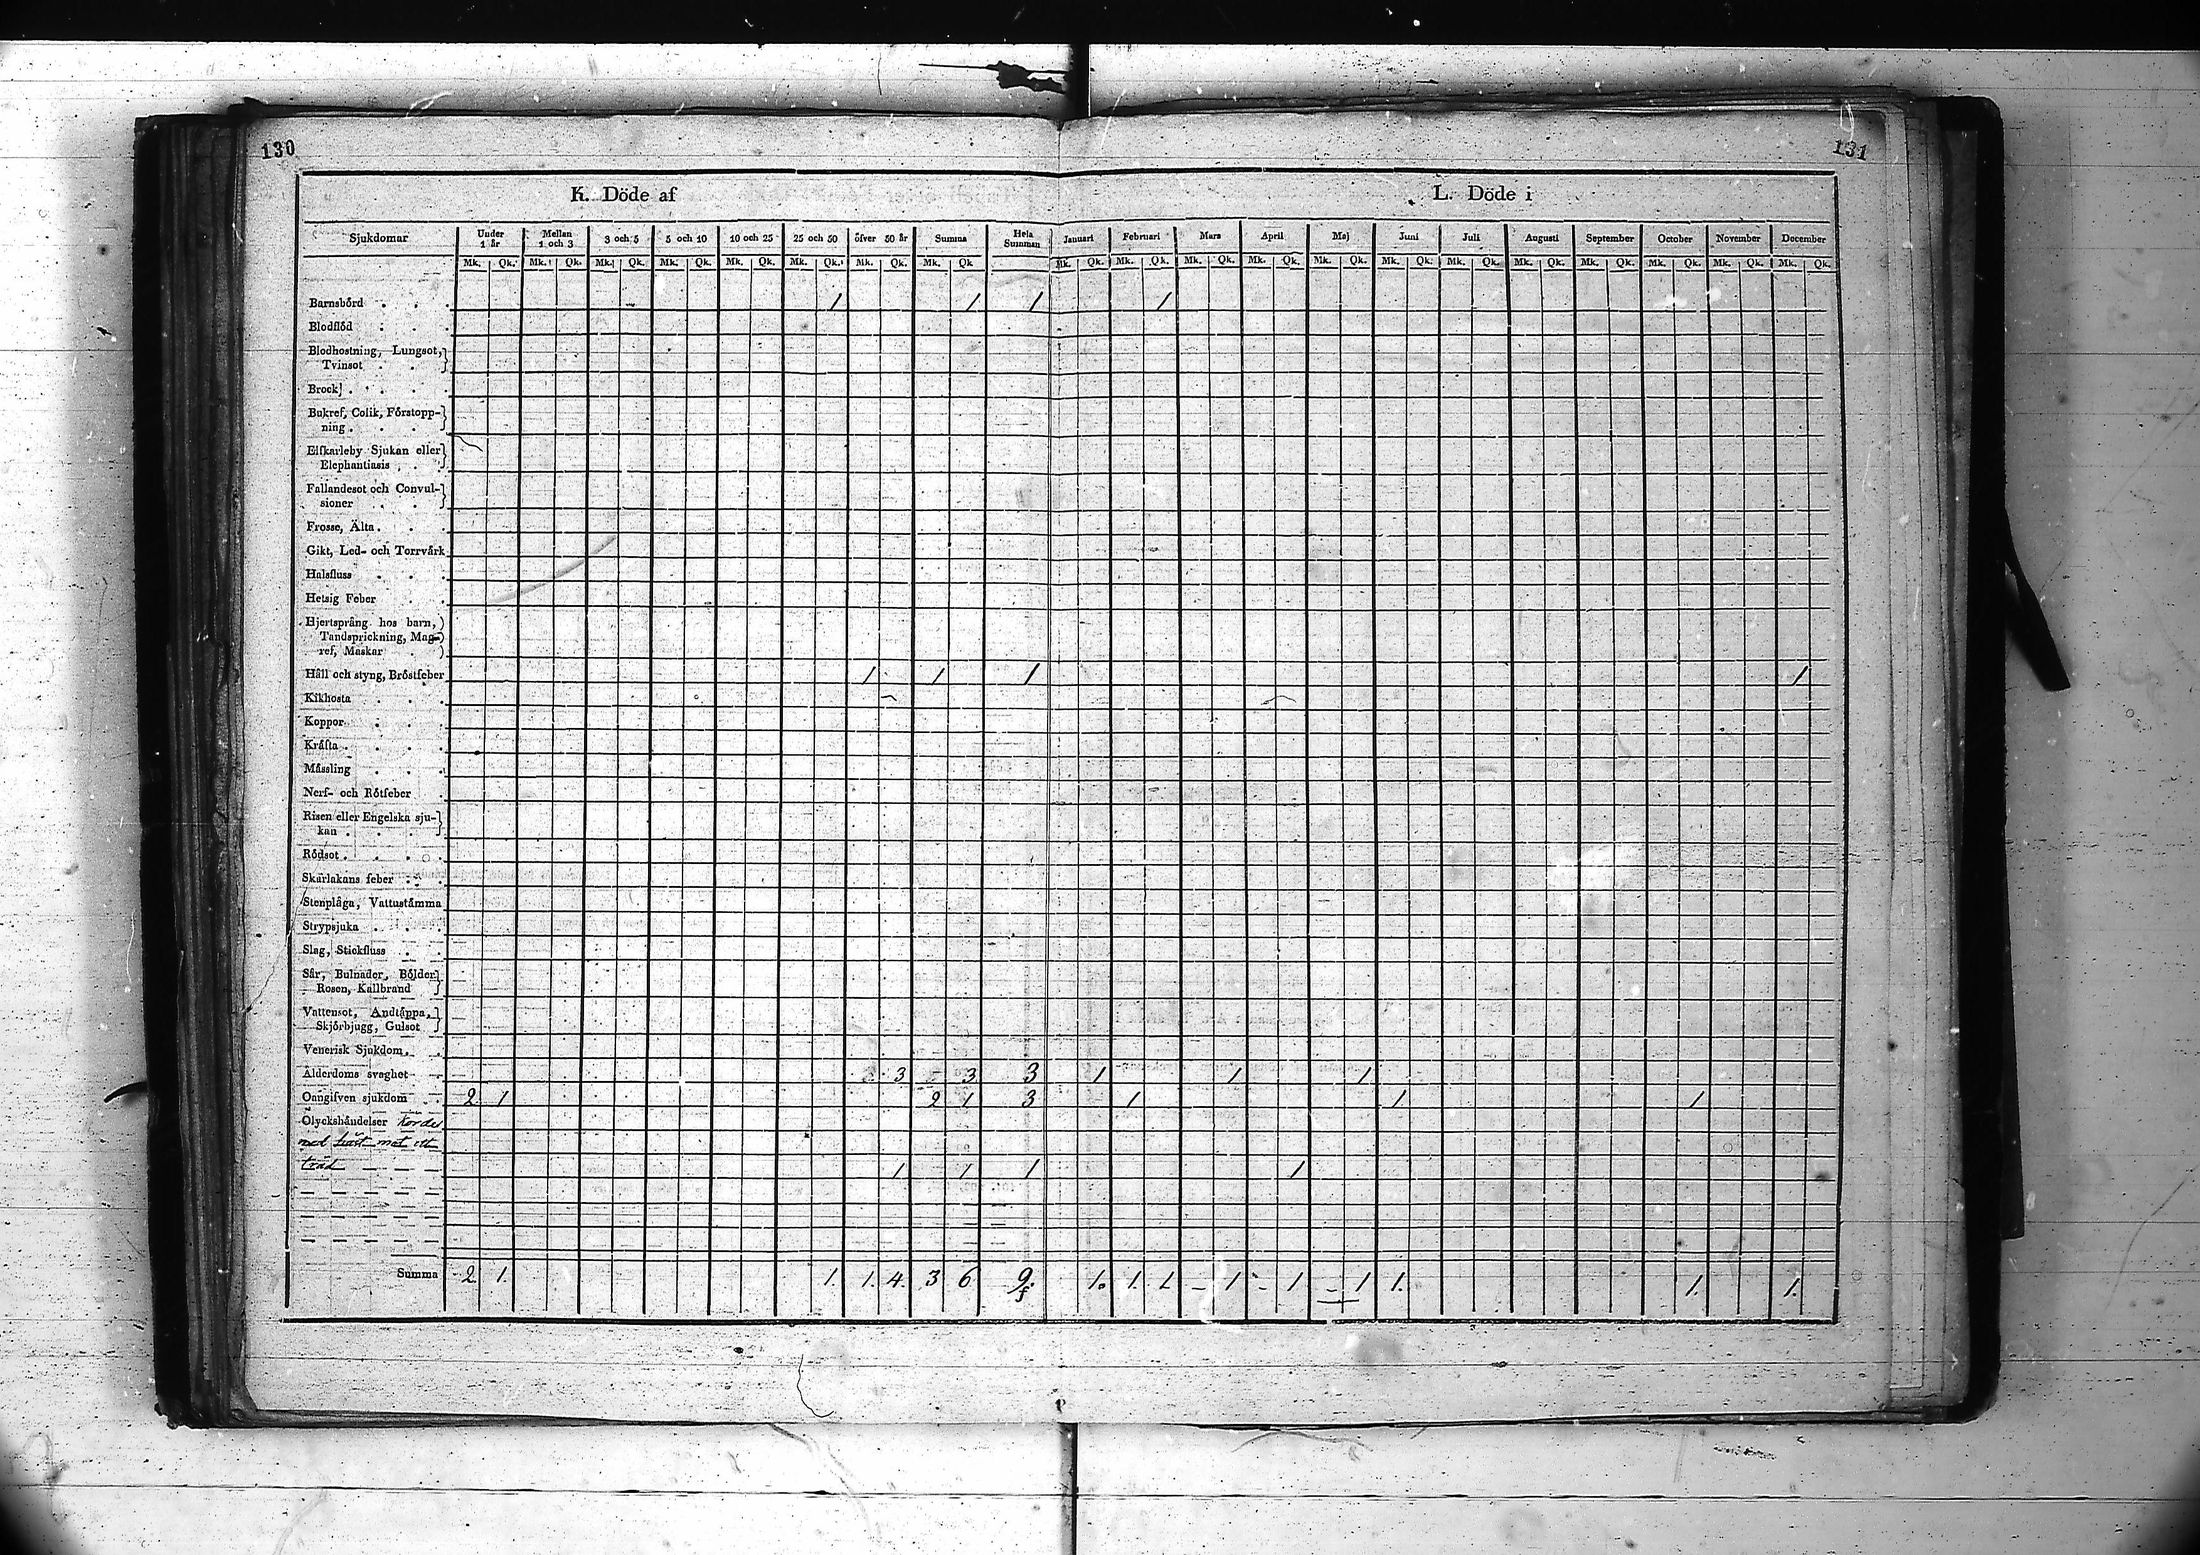 130
131
K. Döde af
L. Döde i
Sjukdomar Under 1 år Mellan 1 och 3 3 och 5 5 och 10 10 och 25 25 och 50 öfver 50 år Summa Hela Summan Januari Februari Mars April Maj Juni Juli Augusti September October November December
Mk. Qk. Mk. Qk. Mk. Qk. Mk. Qk. Mk. Qk. Mk. Qk. Mk. Qk. Mk. Qk Mk. Qk. Mk. Qk. Mk. Qk. Mk. Qk. Mk. Qk. Mk. Qk. Mk. Qk. Mk. Qk. Mk. Qk. Mk. Qk. Mk. Qk. Mk. Qk.
Barnsbörd . . . 1 1 1 1
Blodflöd . . .
Blodhostning, Lungsot,
Tvinsot . . .
Brock . . . .
Bukref, Colik, Förstopp-
ning . . . .
Elfkarleby Sjukan eller
Elephantiasis . .
Fallandesot och Convul-
sioner . . .
Frosse, Älta . . .
Gikt, Led- och Torrvärk
Halsfluss . . .
Hetsig Feber . .
Hjertsprång hos barn,
Tandsprickning, Mag-
ref, Maskar .
Håll och styng, Bröstfeber 1 1 1 1
Kikhosta . . .
Koppor . . .
Kräfta . . . .
Mässling . . .
Nerf- och Rötfeber .
Risen eller Engelska sju-
kan . . . .
Rödsot . . . .
Skarlakans feber . .
Stenplåga, Vattustämma
Strypsjuka . . .
Slag, Stickfluss . .
Sår, Bulnader, Bölder
Rosen, Kallbrand
Vattensot, Andtäppa,
Skjörbjugg, Gulsot
Venerisk Sjukdom . .
Ålderdoms svaghet . 3 3 3 1 1 1
Oangifven sjukdom . 2 1 2 1 3 1 1 1
Olyckshändelser Kördes
med häst mot ett
träd 1 1 1 1
Summa 2 1. 1. 1. 4. 3 6 9. 1. 1. 1 - 1 - 1 - 1 1. 1. 1.